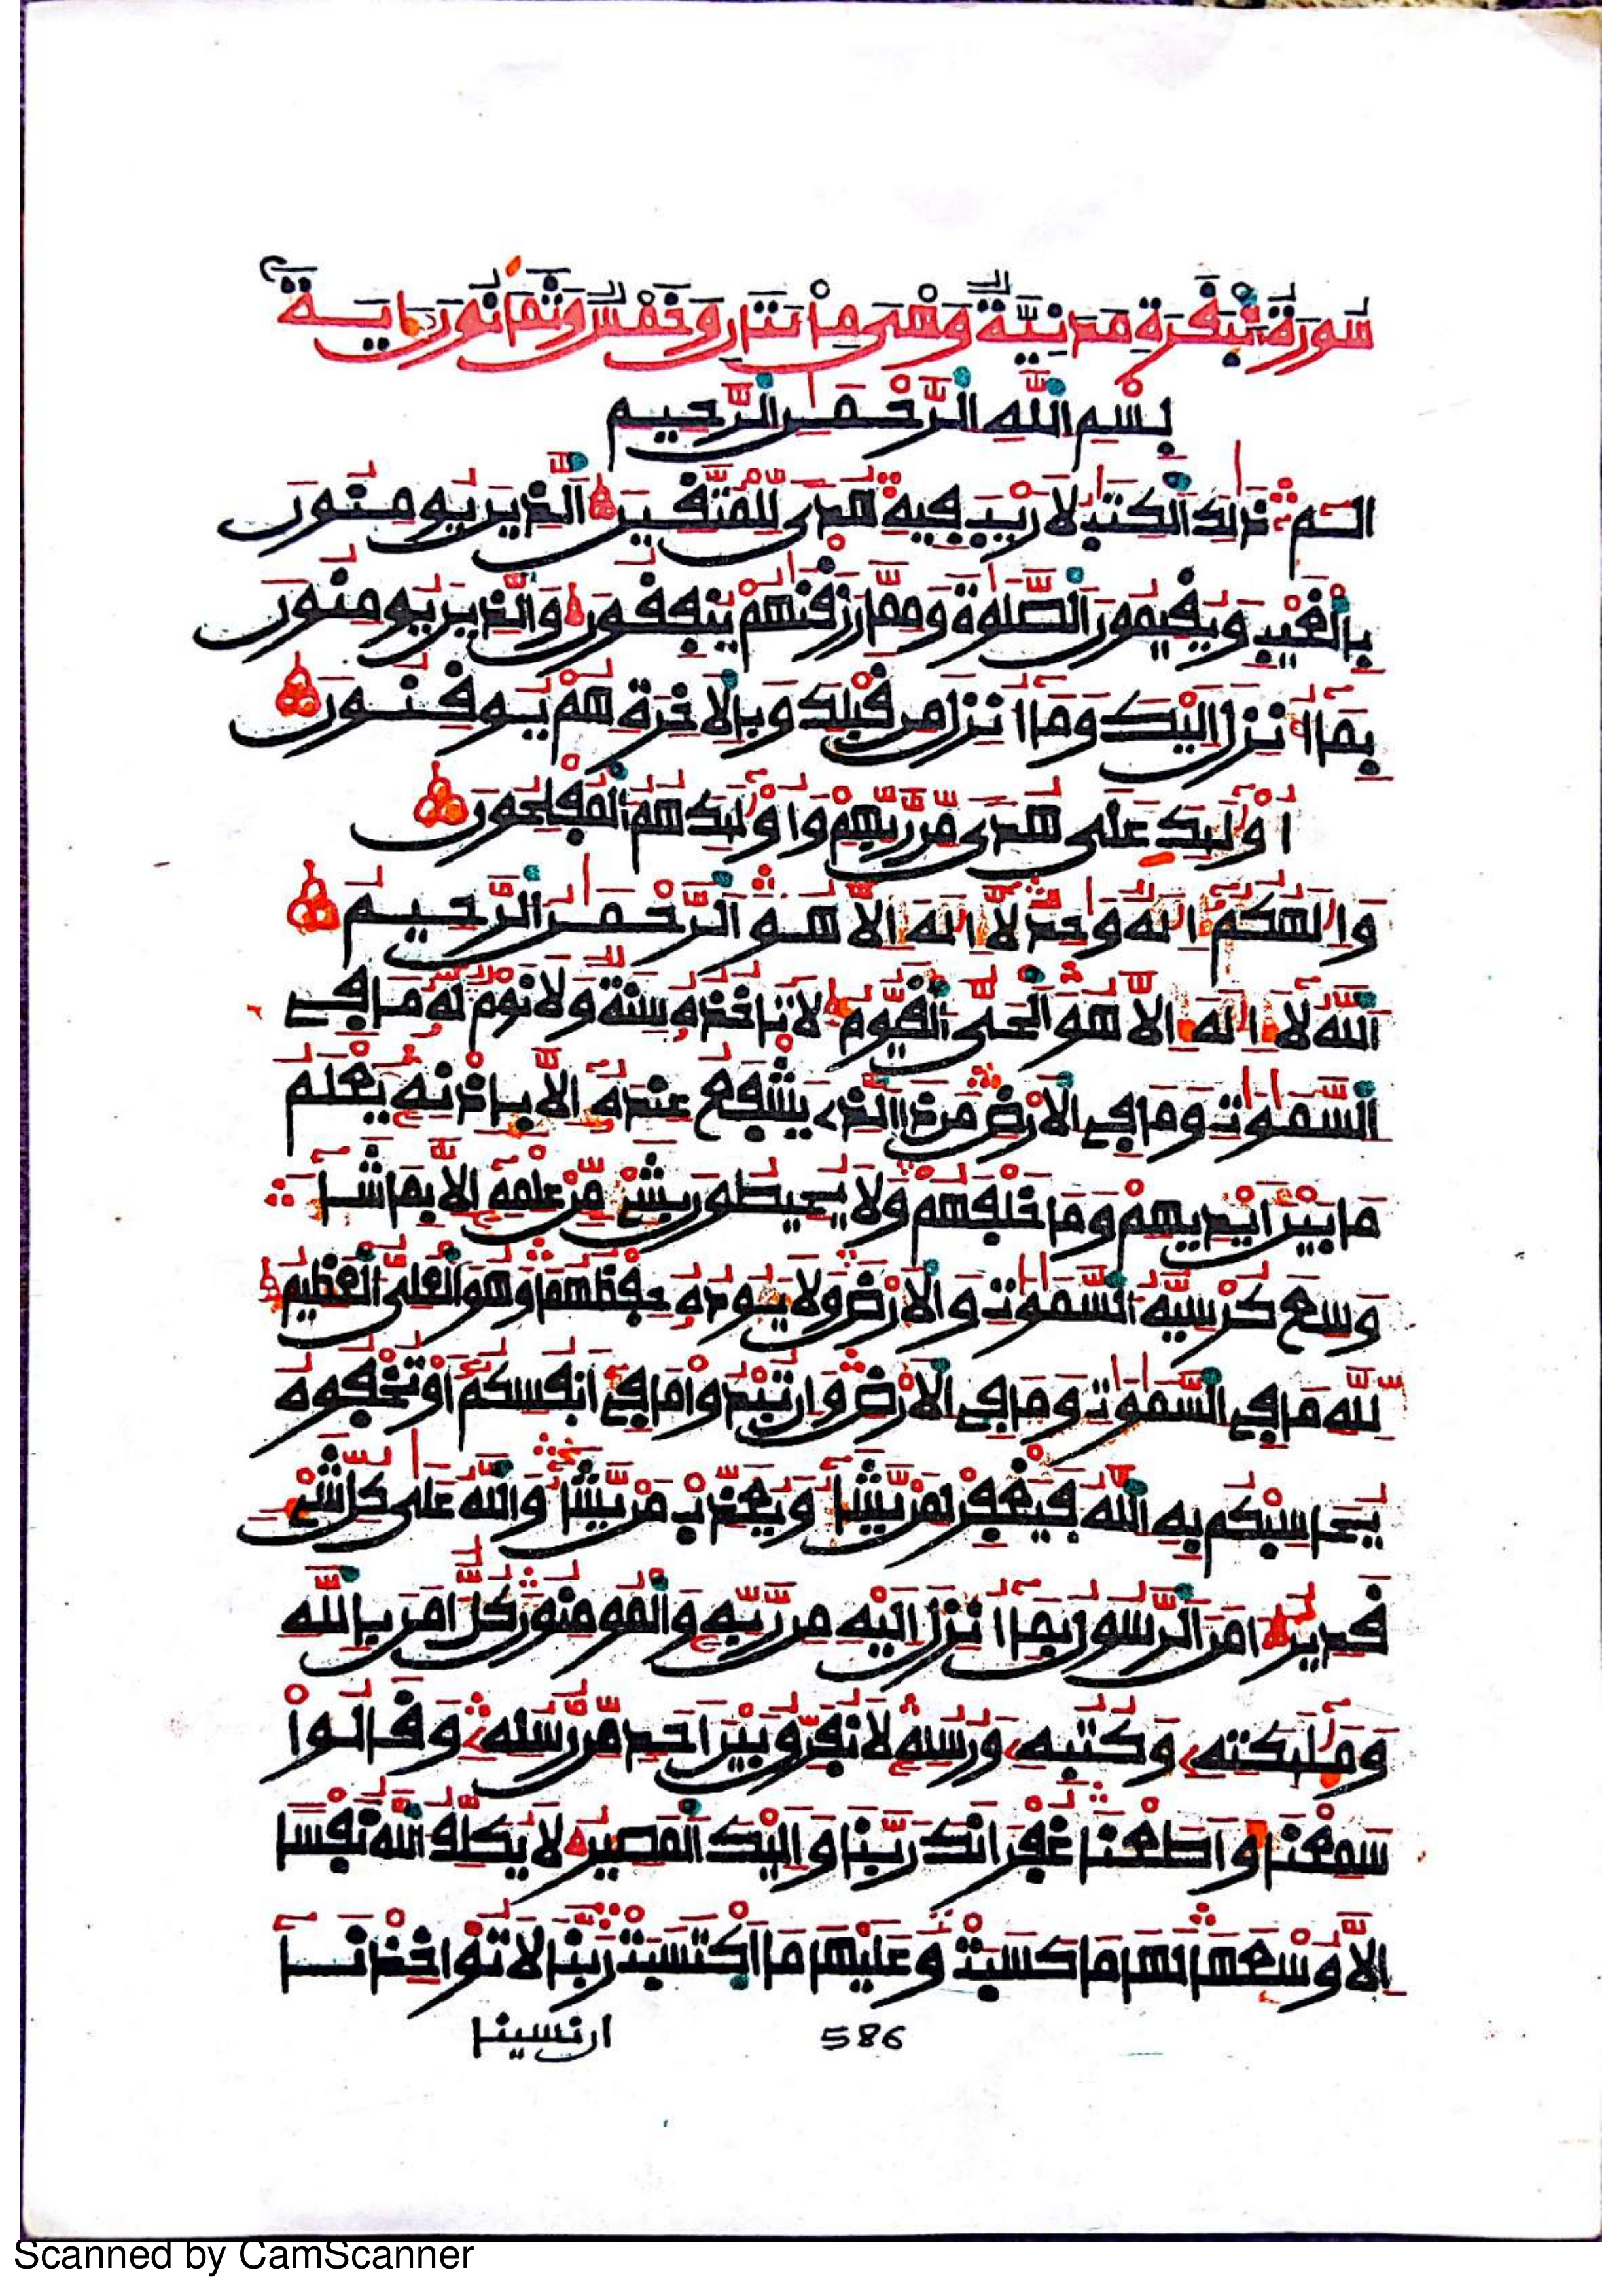 سورة البقرة مدنية وهي مائتان وخمس وثمانون ءاية
بسم الله الرحمن الرحيم
الم ذلك الكتب لا ريب فيه هدى للمتقين الذين يومنون
بالغيب ويقيمون الصلوة ومما رزقنهم ينفقون والذين يومنون
بما أنزل إليك وما أنزل من قبلك وبالاخرة هم يوقنون
أولئك على هدى من ربهم وأولئك هم المفلحون
وإلهكم إله وحد لا إله إلا هو الرحمن الرحيم
الله لا إله إلا هو الحي القيوم لا تاخذه سنة ولا نوم له ما في
السموت وما في الارض من ذا الذي يشفع عنده إلا بإذنه يعلم
ما بين أيديهم وما خلفهم ولا يحيطون بشيء من علمه إلا بما شاء
وسع كرسيه السموت والارض ولا يوده حفظهما وهو العلي العظيم
لله ما في السموت وما في الارض وإن تبدوا ما في أنفسكم أو تخفوه
يحاسبكم به الله فيغفر لمن يشاء ويعذب من يشاء والله على كل شيء
قدير امن الرسول بما أنزل إليه من ربه والمومنون كل امن بالله
وملئكته وكتبه ورسله لا نفرق بين أحد من رسله وقالوا
سمعنا وأطعنا غفرانك ربنا وإليك المصير لا يكلف الله نفسا
إلا وسعها لها ما كسبت وعليها ما اكتسبت ربنا لا تواخذنا
586 ان نسينا
Scanned by CamScanner